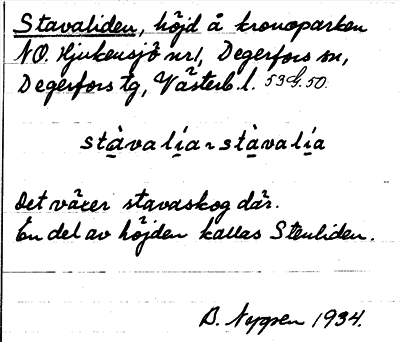 Stavaliden, höjd å kronoparken
NO. Hjukensjö nr 1, Degerfors sn,
Degerfors tg, Västerb. l. 53 G. 50.
stàvalía ~ stàvalía
Det växer stavaskog där.
En del av höjden kallas Stenliden.
B. Nygren 1934.